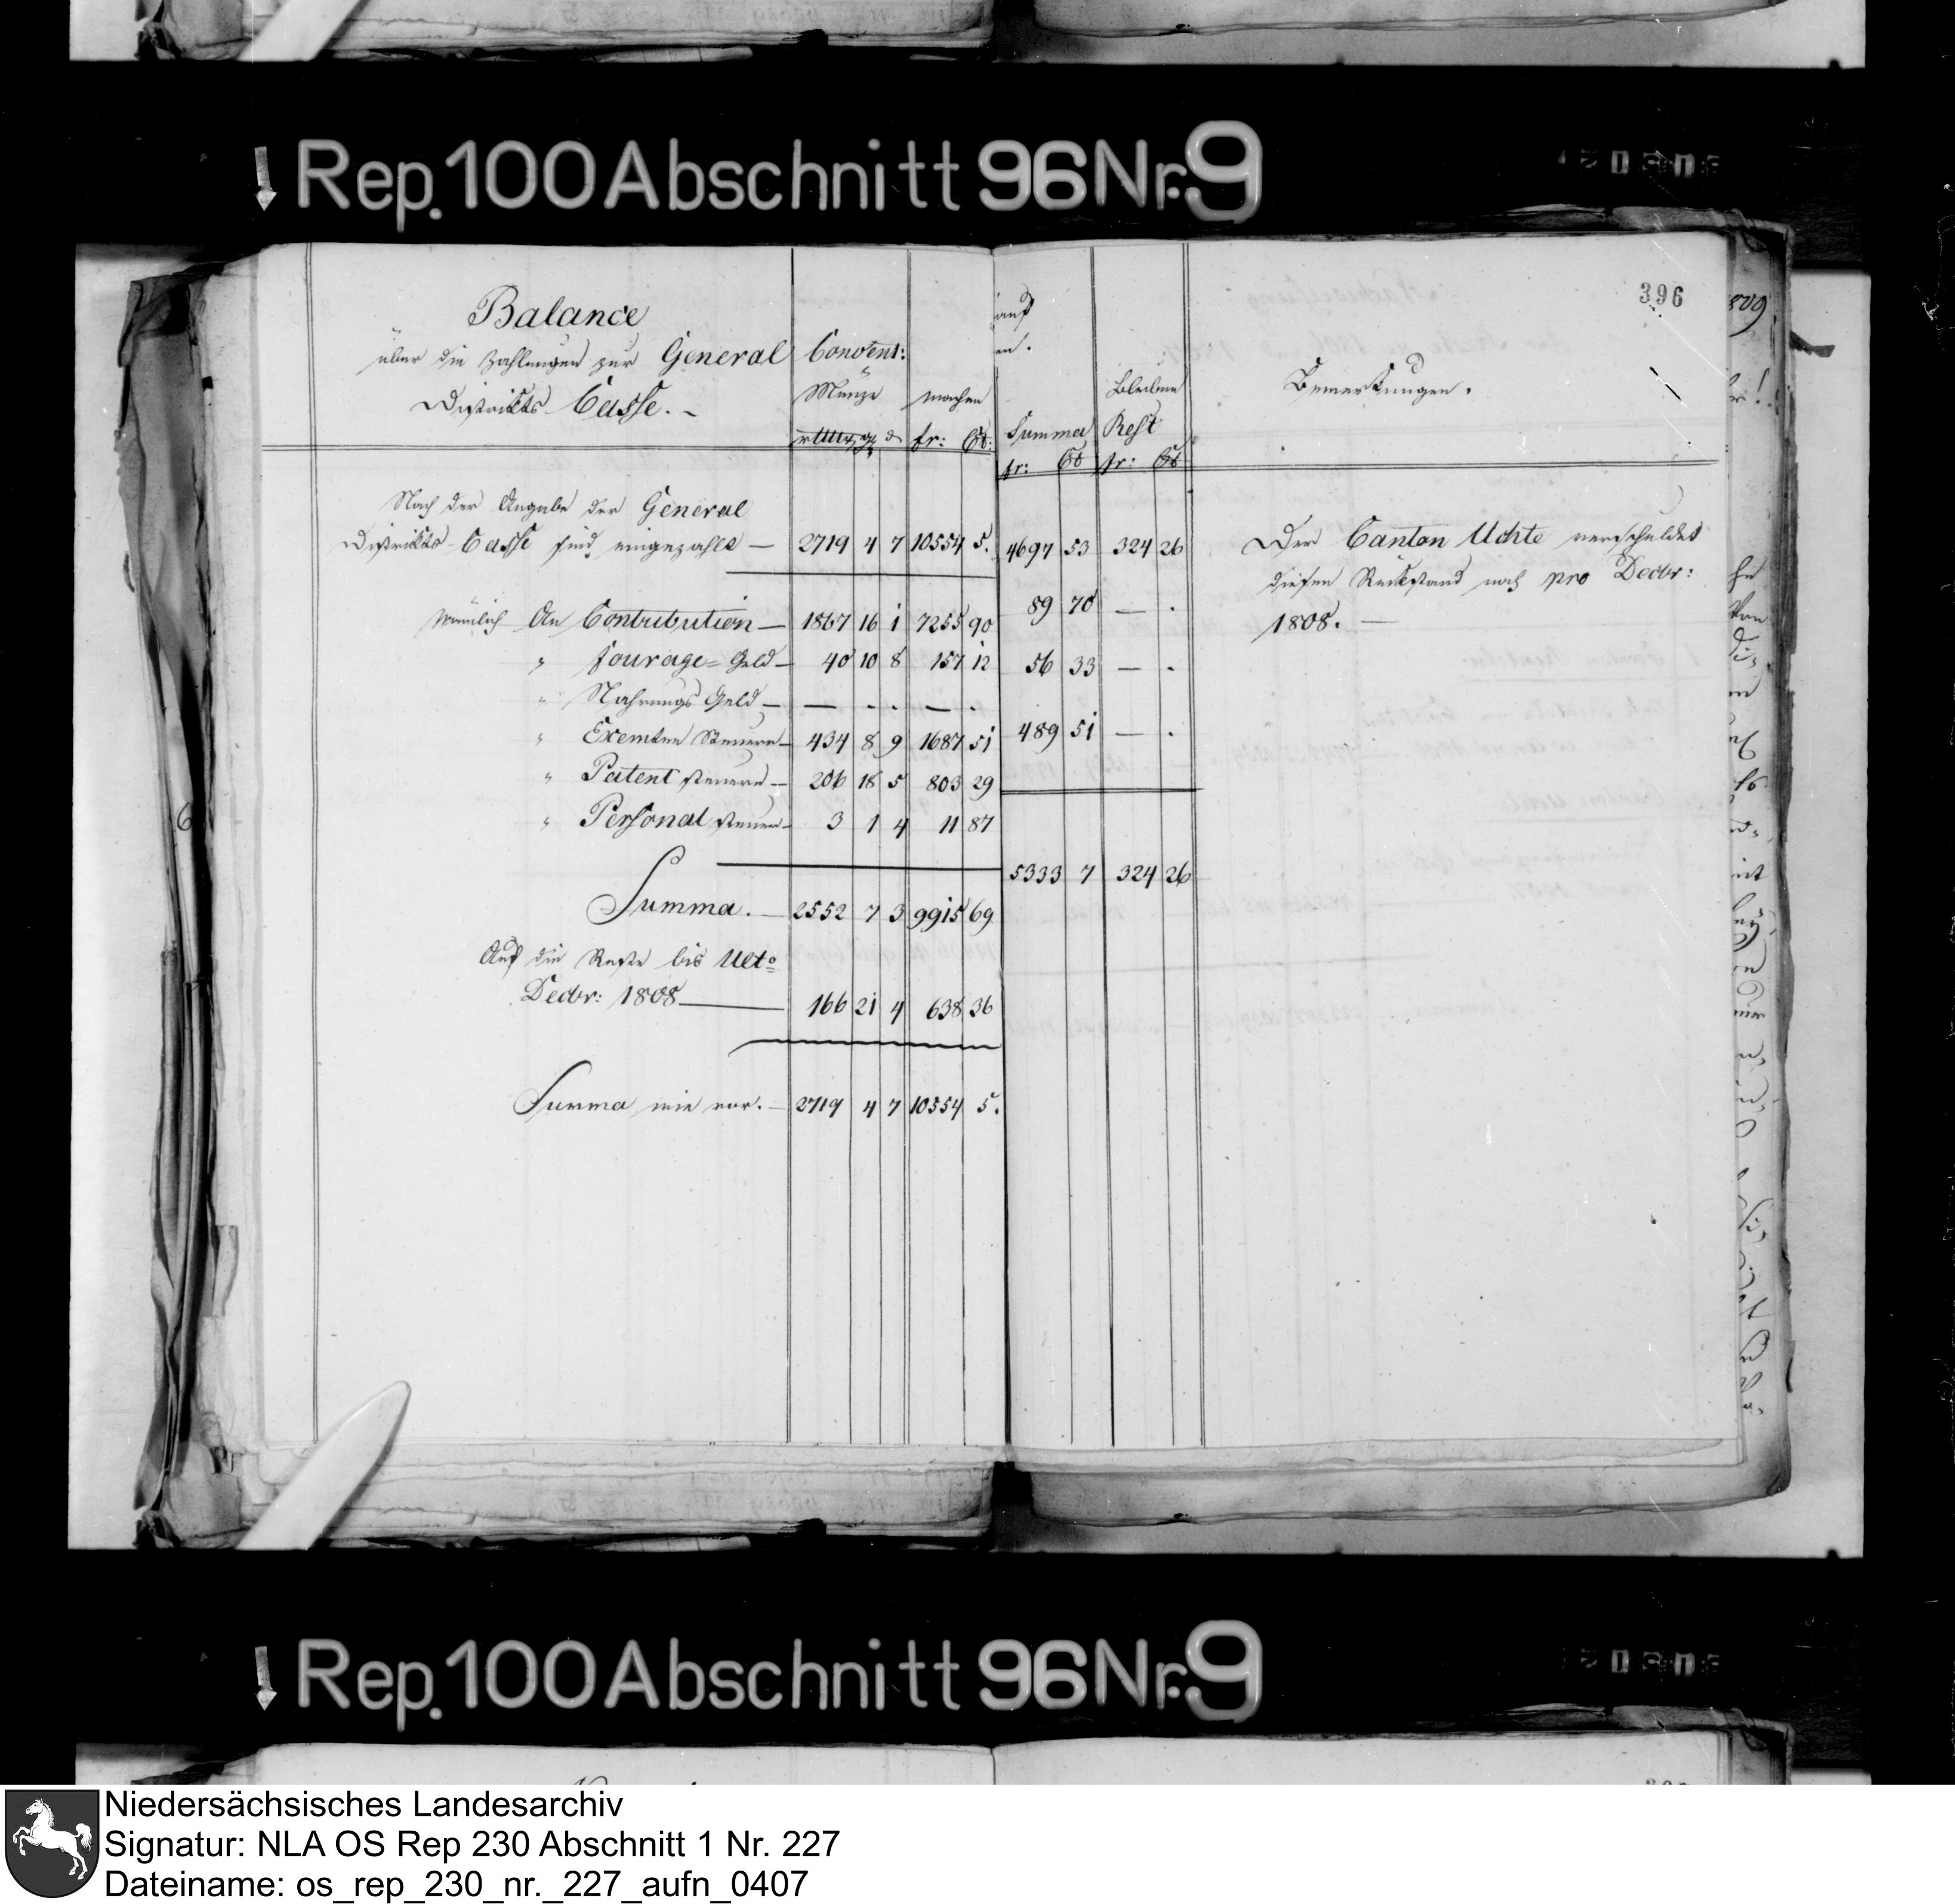 Rep. 100 Abschnitt 96 Nr. 9
396
Balance
über die Zahlungen zur General
Distrikts Casse. -
Convent:
Münze
machen
rthlr gr d
fr: Ct:
Nach der Angabe der General
Distrikts-Casse sind eingezahlt — 2719 4 7 10554 5.
Nämlich An Contribution — 1867 16 1 7255 90
" fourage=Geld — 40 10 8 157 12
" Nahrungs Geld — — . . — .
" Exemten Steuern — 434 8 9 1687 51
" Patent steuern — 206 18 5 803 29
" Personal steuern — 3 1 4 11 87
Summa. — 2552 7 3 9915 69
Auf die Reste bis Ulto
Decbr: 1808 — 166 21 4 638 36
Summa wie vor. — 2719 4 7 10554 5.
auf
en.
Summa
fr: Ct
Bleiben
Rest
fr: Ct
Bemerkungen.
4697 53 324 26
89 70 — .
56 33 — .
489 51 — .
5333 7 324 26
Der Canton Uchte verschuldet
diesen Rückstand noch pro Decbr:
1808. —
809
6
Rep. 100 Abschnitt 96 Nr. 9
Niedersächsisches Landesarchiv
Signatur: NLA OS Rep 230 Abschnitt 1 Nr. 227
Dateiname: os_rep_230_nr._227_aufn_0407